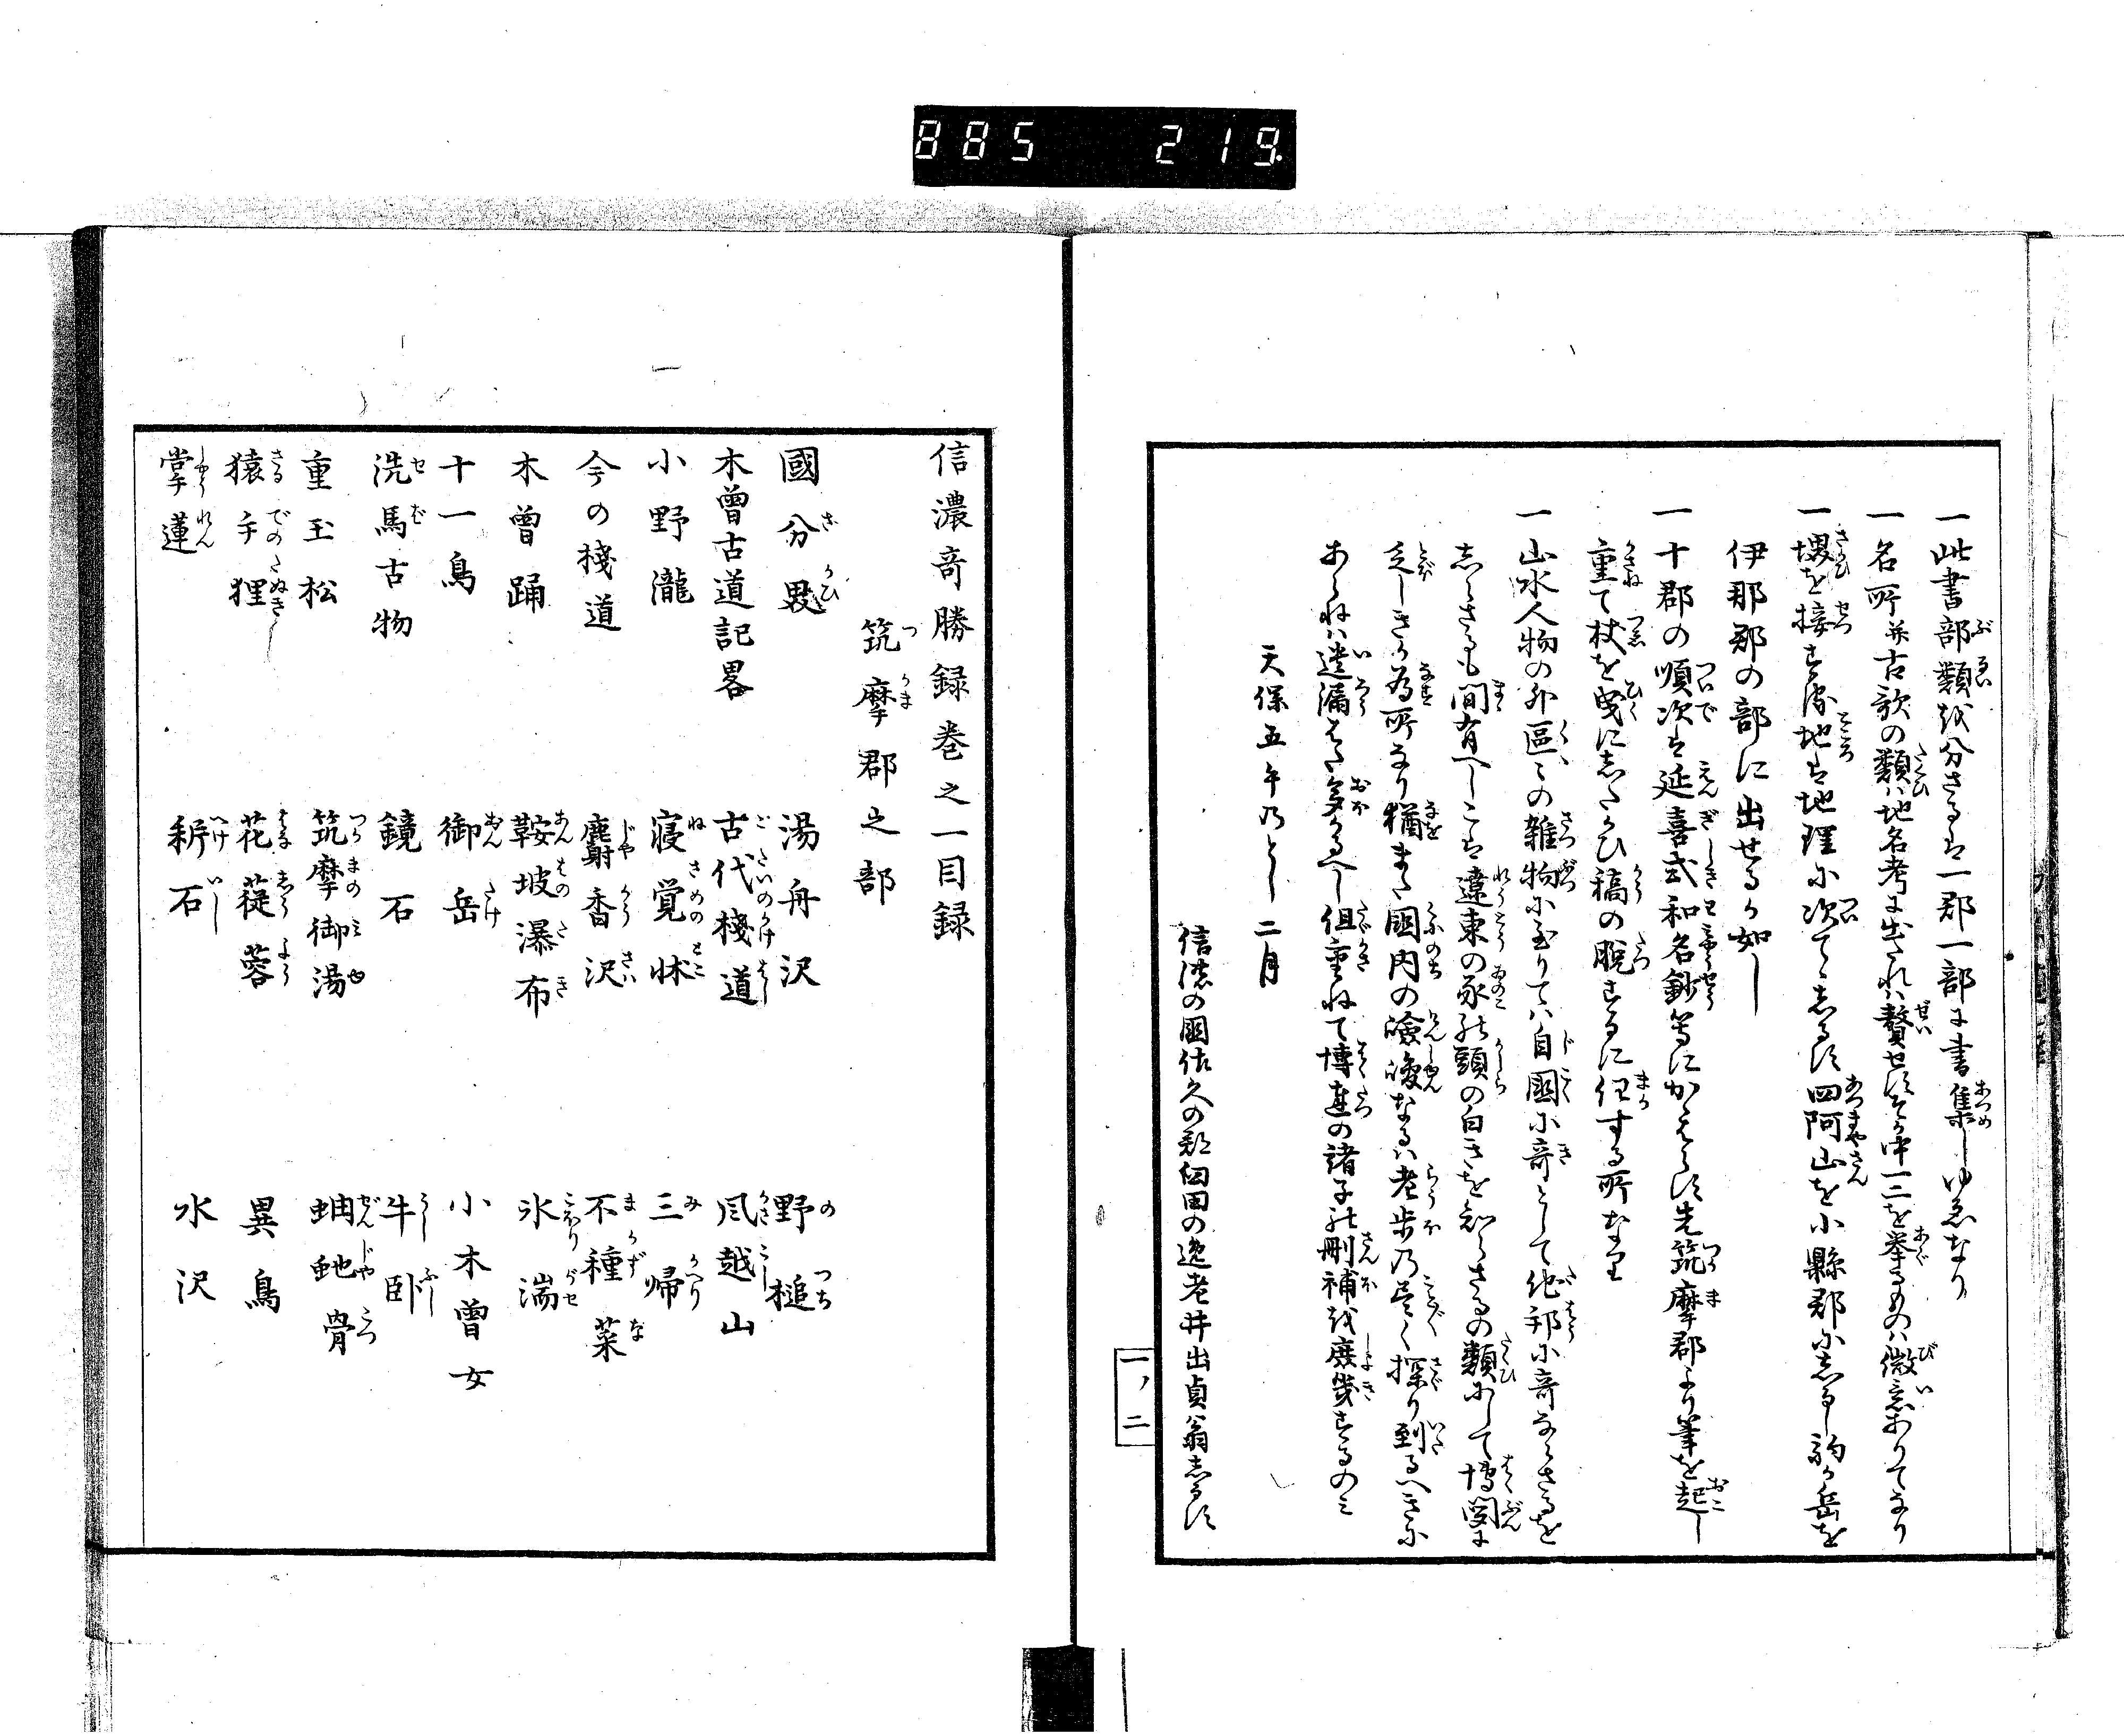 885 219
一此書部類を分さるは一郡一部に書集しゆゑなり
一名所并古歌の類ハ地名考に出たれハ贅せす其中一二を挙るものハ微意ありてなり
一堺を接する地は地理に次てしるす四阿山を小縣郡にしるし駒ヶ岳を
伊那郡の部に出せるか如し
一十郡の順次は延喜式和名鈔等にかゝはらす先筑摩郡より筆を起し
重て杖を曳にしたかひ稿の脱するに任する所なり
一山水人物の外區〻の雑物に至りてハ自國に奇として他邦に奇ならさるを
しらさるも間有へしこは遼東の豕の頭の白きを知らさるの類にして博聞に
乏しきか為所なり猶また國内の嶮峻なるハ老歩の尽く探り到るへきに
あらねハ遺漏はた多かるへし但重ねて博達の諸子の刪補を庶幾するのミ
天保五午のとし二月
信濃の國佐久の郡臼田の逸老井出貞翁しるす
一ノ二
信濃奇勝録巻之一目録
筑摩郡之部
國分 湯舟沢 野槌
木曾古道記畧 古代棧道 風越山
小野瀧 寝覚牀 三帰
今の棧道 麝香沢 不種菜
木曾踊 鞍坡瀑布 氷湍
十一鳥 御岳 小木曾女
洗馬古物 鏡石 牛臥
重玉松 筑摩御湯 蚺虵骨
猿手狸 花蓯蓉 異鳥
掌蓮 石 水沢